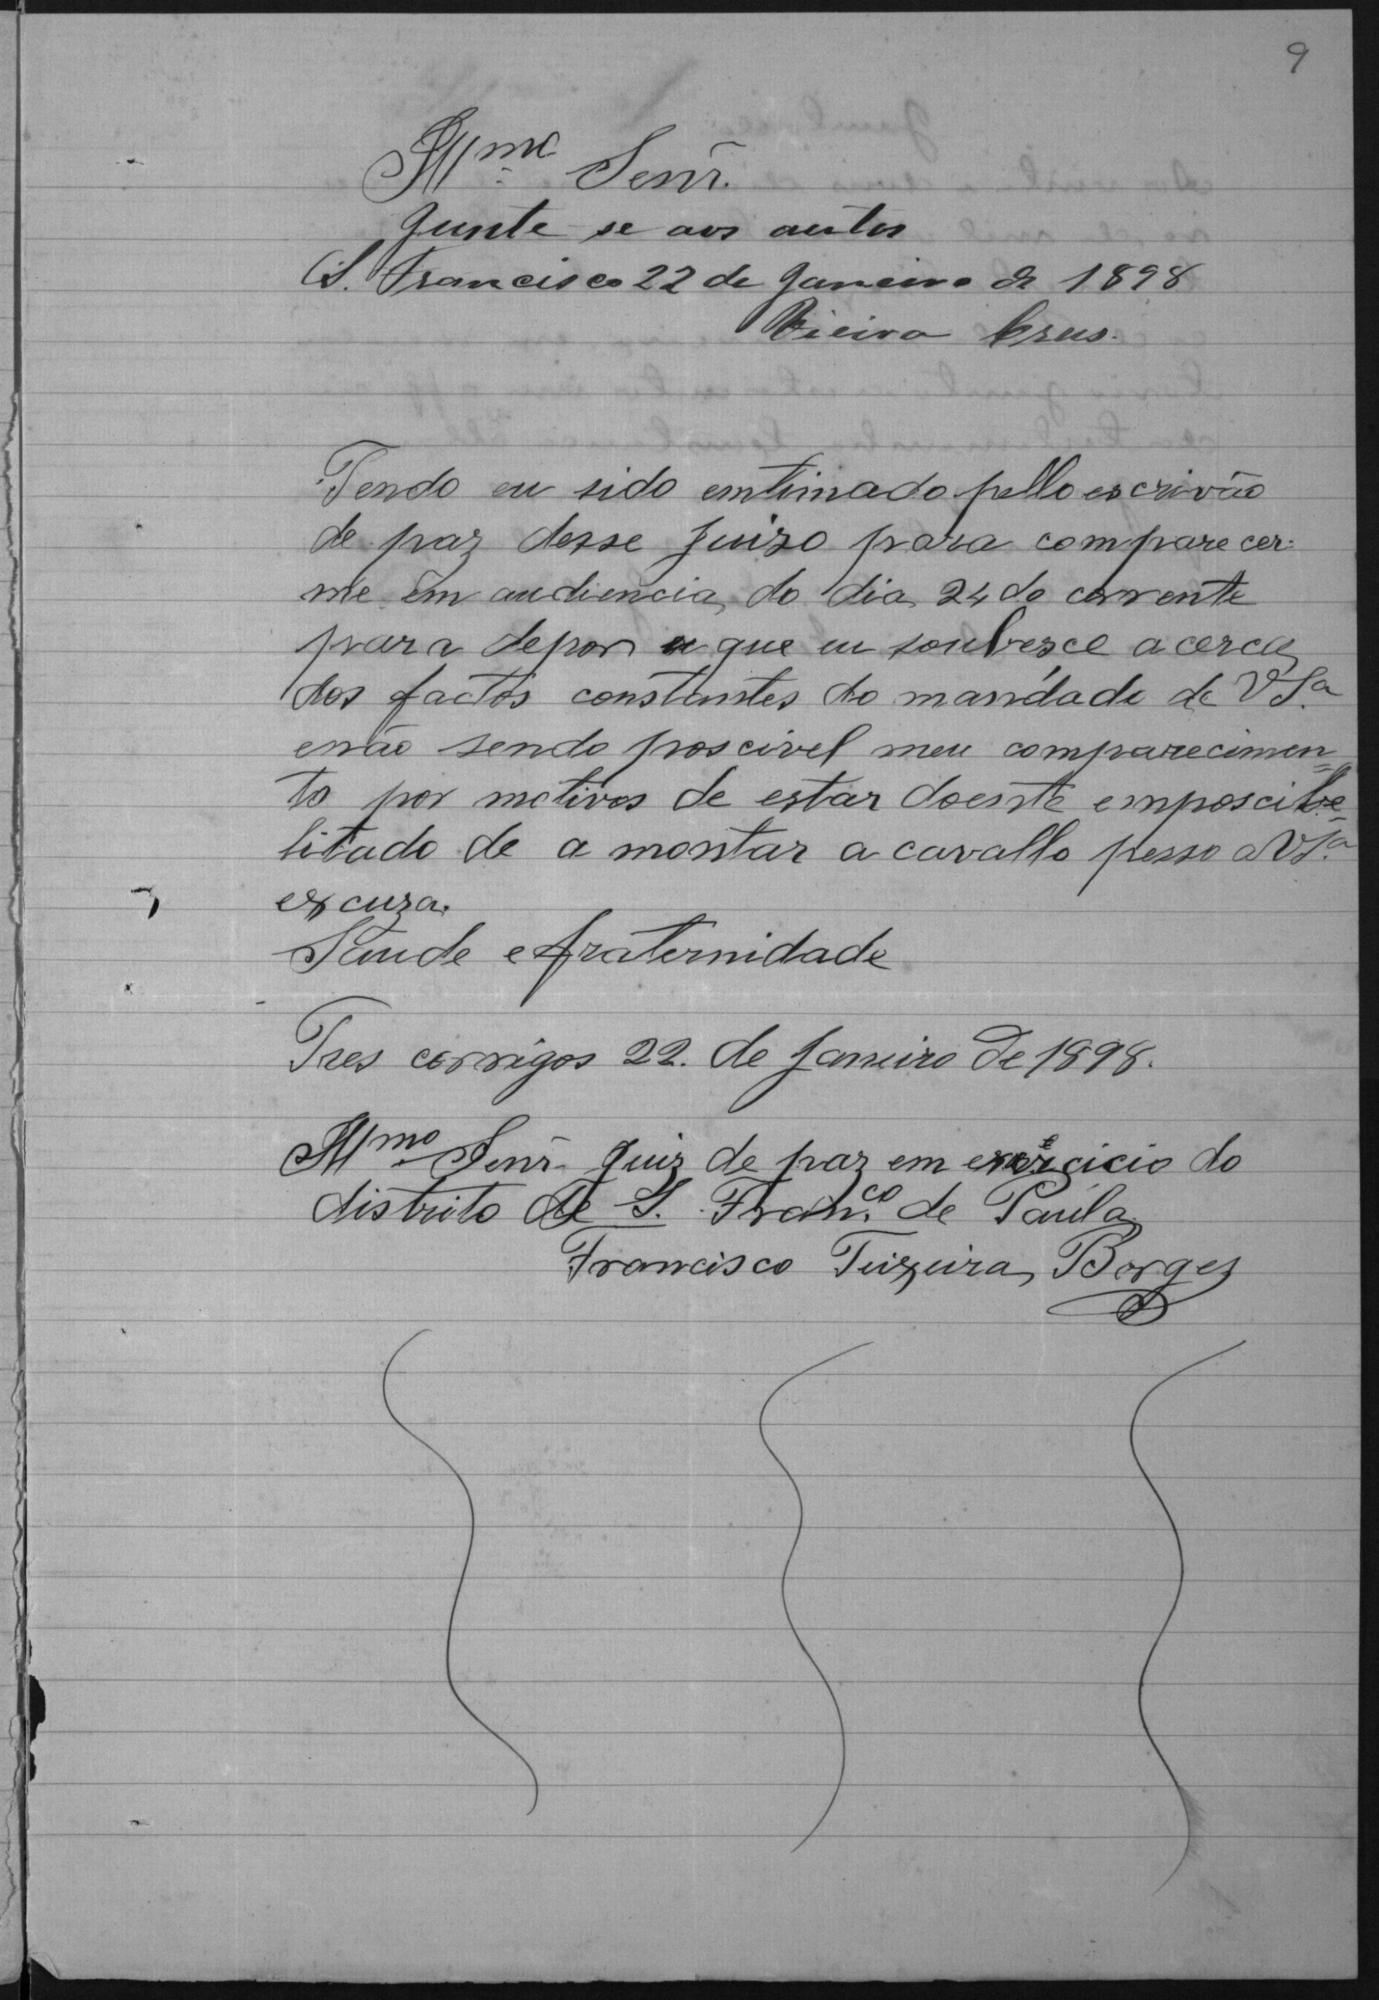 9
Illmo Senr.
Junte se aos autos
S. Francisco 22 de Janeiro de 1898
Vieira Crus.
Tendo eu sido emtimado pello escrivão
de paz desse juizo para comparecer-
me em audiencia do dia 24 do corrente
para depor o que eu soubesce acerca
dos factos constantes do mandado de VSª
enão sendo poscivel meu comparecimen=
to por motivos de estar doente emposcibe=
litado de a montar a cavallo pesso a VSª
excuza.
Saude e fraternidade
Tres corrigos 22. de Janeiro de 1898.
Illmo Senr. Juiz de paz em exercicio do
distrito de S. Franco de Paula
Francisco Teixeira Borges